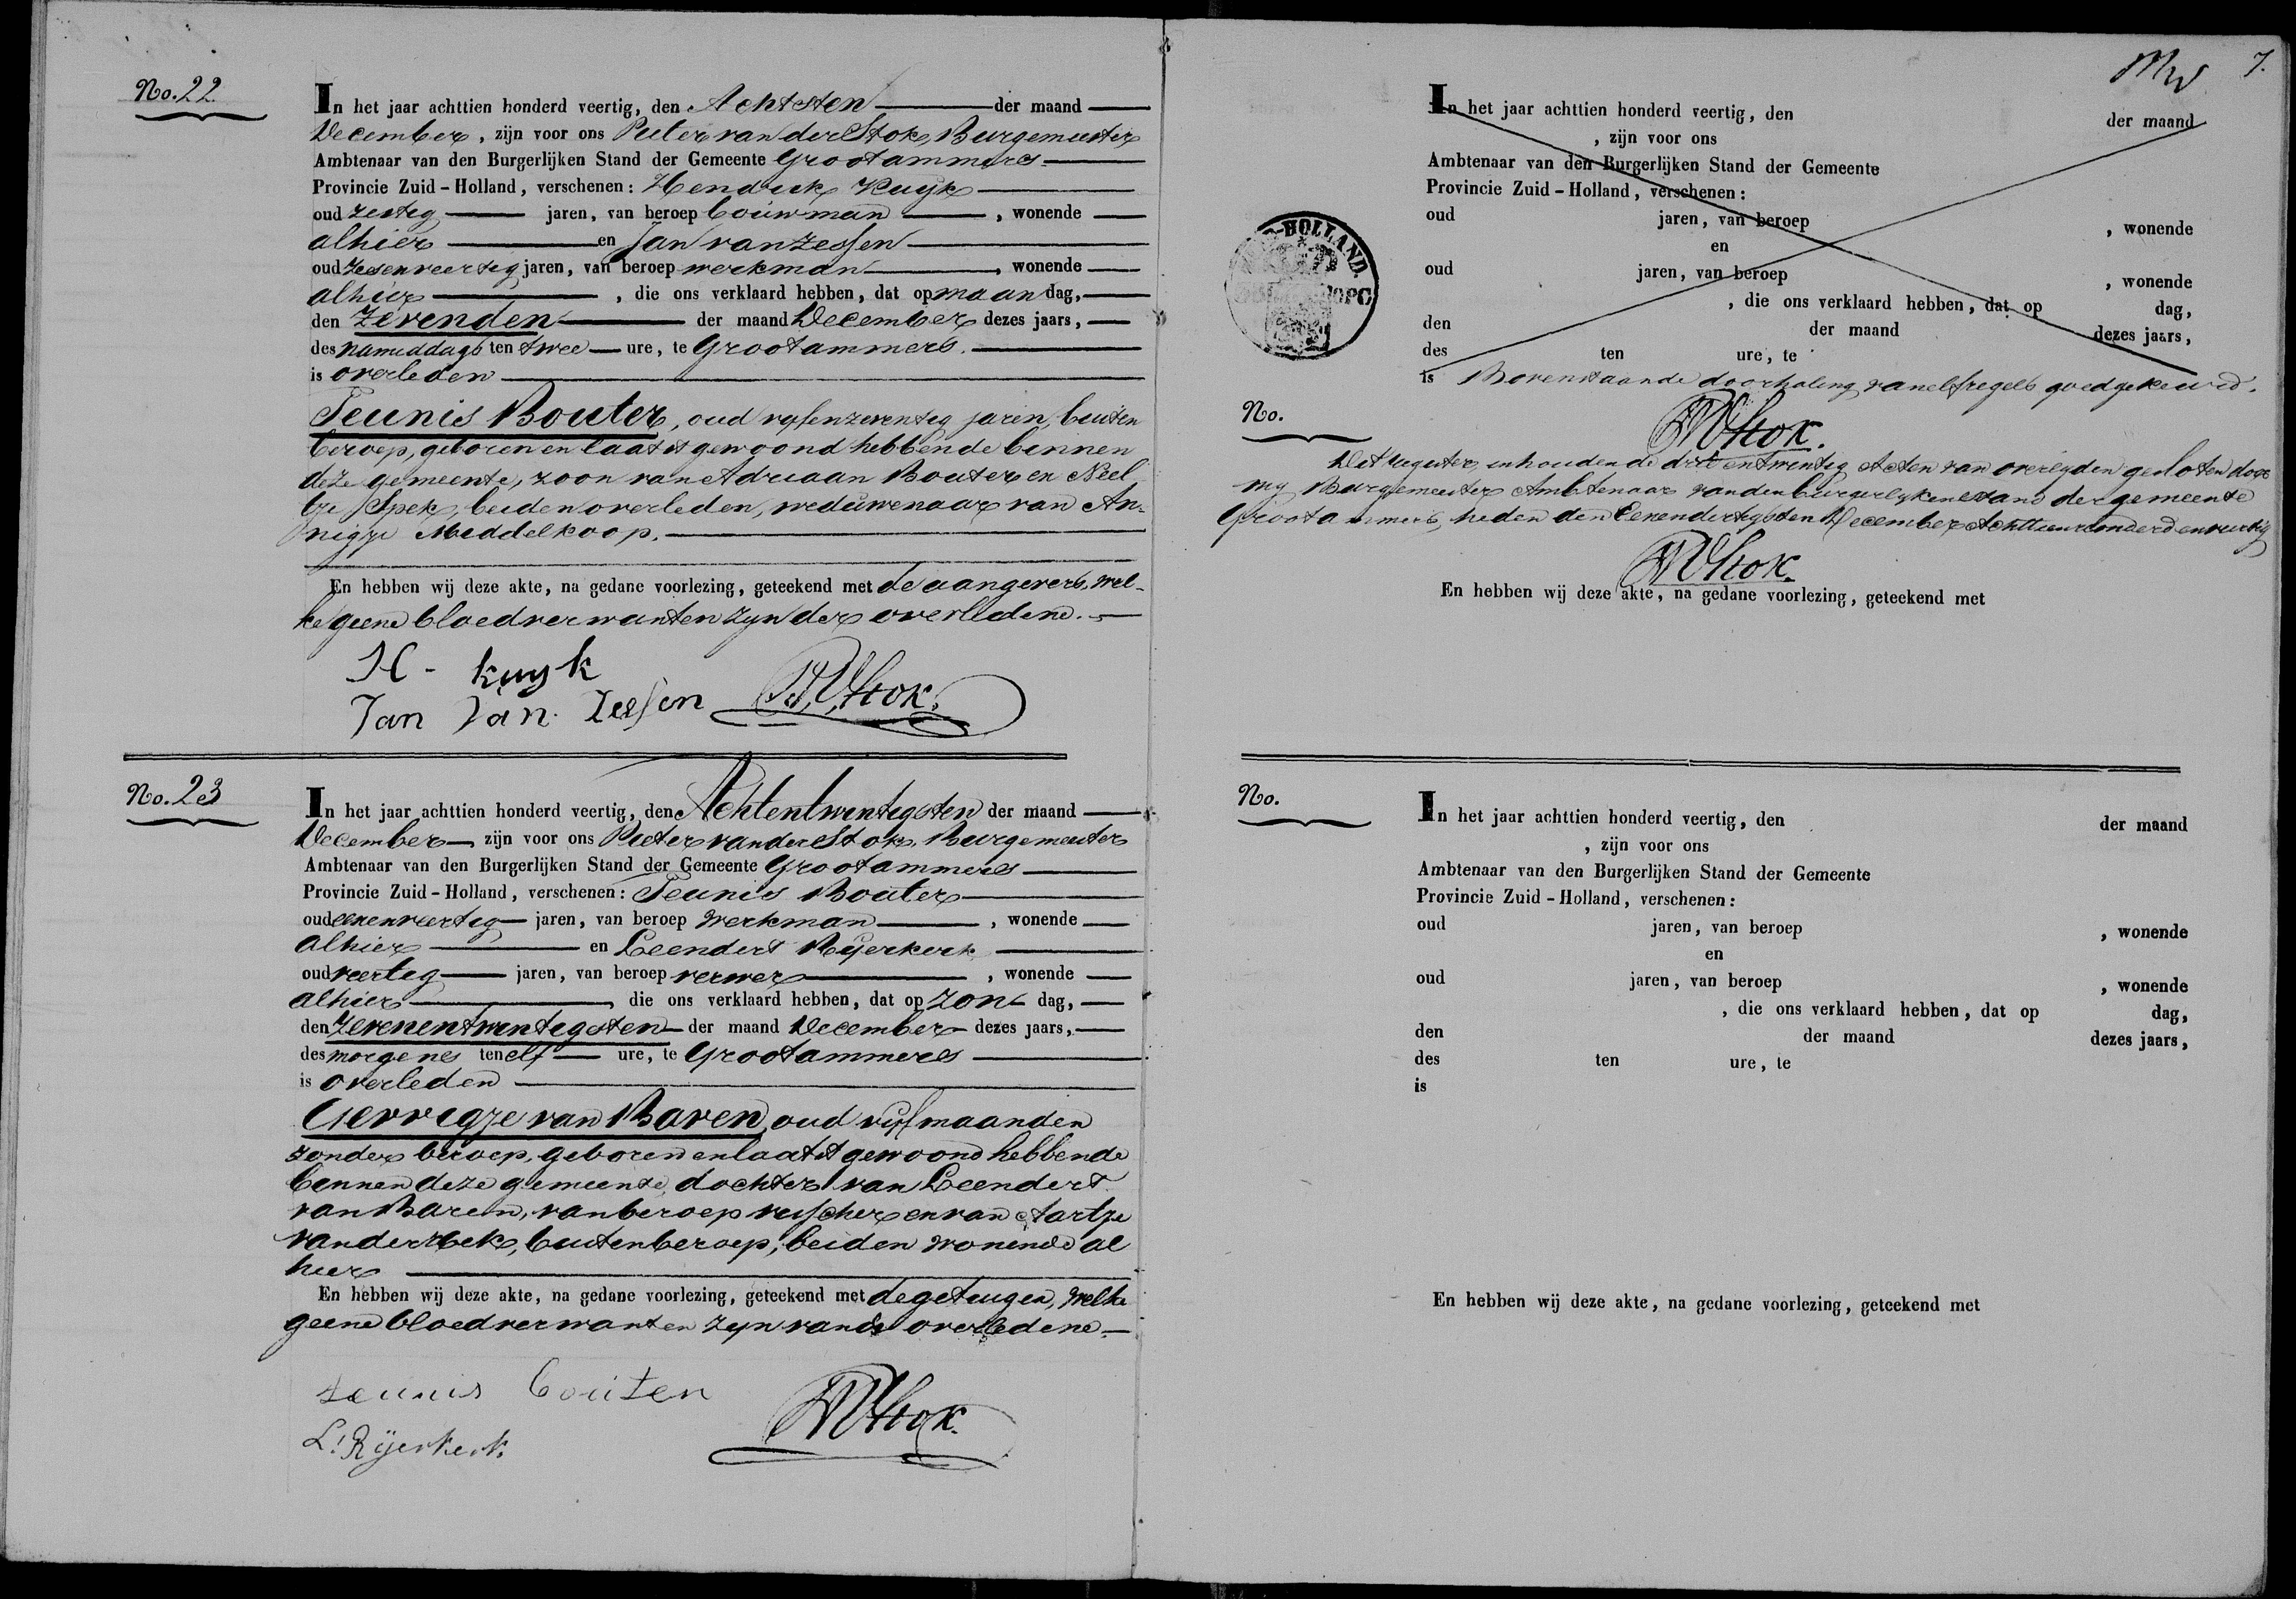 No. 22
In het jaar achttien honderd veertig, den Achtsten der maand
December, zijn voor ons Pieter van der Stok, Burgemeester
Ambtenaar van den Burgerlijken Stand der Gemeente Grootammers
Provincie Zuid-Holland, verschenen: Hendrik Kuyk
oud zestig jaren, van beroep bouwman, wonende
alhier en Jan van Zessen
oud zesenveertig jaren, van beroep werkman, wonende
alhier, die ons verklaard hebben, dat op maandag,
den Zevenden der maand December dezes jaars,
des namiddags ten twee ure, te Grootammers.
is overleden
Teunis Bouter, oud vyfenzeventig jaren, buiten
beroep, geboren en laatst gewoond hebbende binnen
deze gemeente, zoon van Adriaan Bouter en Neel
tje Spek, beiden overleden, weduwenaar van An-
nigje Middelkoop.
En hebben wij deze akte, na gedane voorlezing, geteekend met de aangevers, wel-
ke geene bloedverwanten zyn der overledene.
H - kuyk
Jan Van Zessen PVStok.
No. 23
In het jaar achttien honderd veertig, den Achtentwintigsten der maand
December zijn voor ons Pieter van der Stok, Burgemeester
Ambtenaar van den Burgerlijken Stand der Gemeente Grootammers
Provincie Zuid-Holland, verschenen: Teunis Bouter
oud eenenveertig jaren, van beroep Werkman, wonende
alhier en Leendert Ryerkerk
oud veertig jaren, van beroep verwer, wonende
alhier, die ons verklaard hebben, dat op zondag,
den Zevenentwintigsten der maand December dezes jaars,
des morgens ten elf ure, te Grootammers
is overleden
Gerrigje van Baren, oud vyf maanden
zonder beroep, geboren en laatst gewoond hebbende
binnen deze gemeente, dochter van Leendert
van Baren, van beroep visscher en van Aartje
van der Bek, buiten beroep, beiden wonende al
hier
En hebben wij deze akte, na gedane voorlezing, geteekend met de getuigen, welke
geene bloedverwanten zyn van de overledene.
teunis bouter
L: Rÿerkerk PVStok.
7.
In het jaar achttien honderd veertig, den der maand
, zijn voor ons
Ambtenaar van den Burgerlijken Stand der Gemeente
Provincie Zuid-Holland, verschenen:
oud jaren, van beroep , wonende
en
oud jaren, van beroep , wonende
, die ons verklaard hebben, dat op dag,
den der maand dezes jaars,
des ten ure, te
is Bovenstaande doorhaling van elf regels goedgekeurd.
HOLLAND.
No.
PVStok.
Dit Register, inhoudende drie entwintig Acten van overlyden gesloten door
my Burgemeester Ambtenaar van den burgerlyken stand der gemeente
Grootammers, heden den Eenendertigsten December Achttienhonderd en veertig
PVStok.
En hebben wij deze akte, na gedane voorlezing, geteekend met
No.
In het jaar achttien honderd veertig, den der maand
, zijn voor ons
Ambtenaar van den Burgerlijken Stand der Gemeente
Provincie Zuid-Holland, verschenen:
oud jaren, van beroep , wonende
en
oud jaren, van beroep , wonende
, die ons verklaard hebben, dat op dag,
den der maand dezes jaars,
des ten ure, te
is
En hebben wij deze akte, na gedane voorlezing, geteekend met